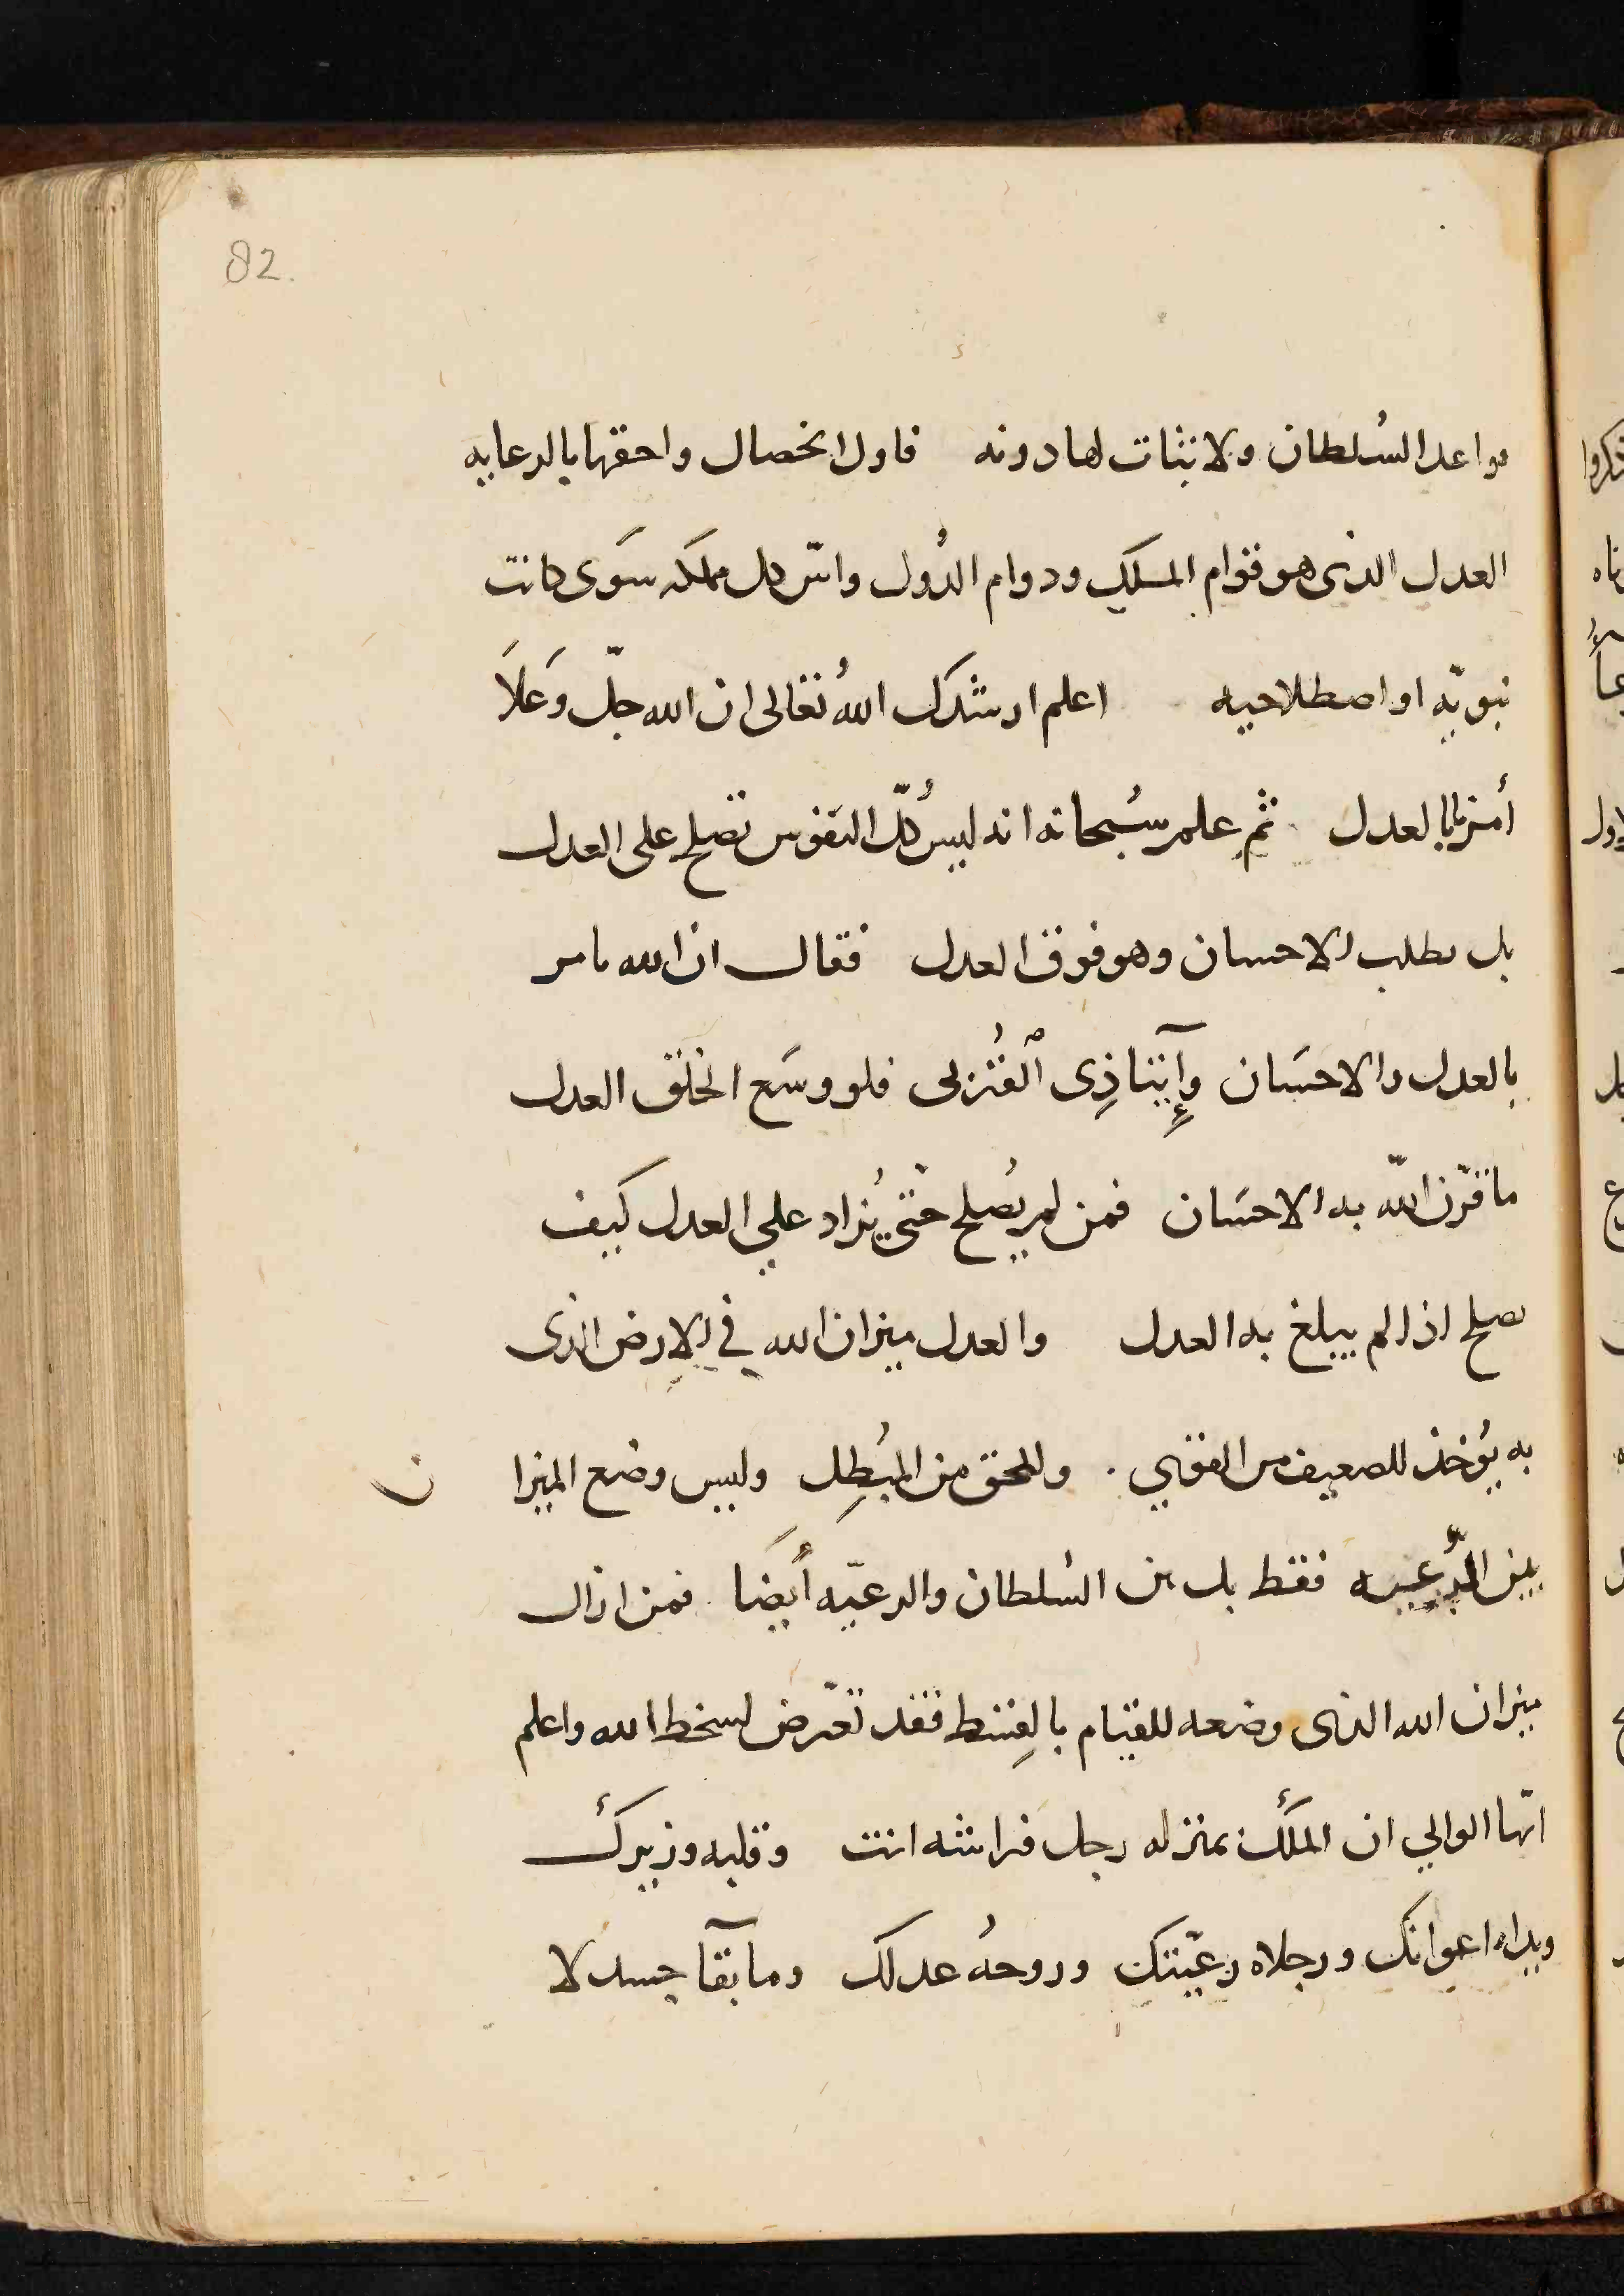 82.
قواعد السُلطان ولا ثبات لها دونه فاول الخصال واحقها بالرعايه
العدل الذى هو قوام الملك ودوام الدُول واسّ كل مملكه سَوى كانت
نبويّه او اصطلاحيه اعلم ارشدك اللهُ تعالى ان الله جلّ وَعَلاَ
أمرنا بالعدل ثم علم سُبحانه انه ليس كلّ النفوس تصلح على العدل
بل تطلب الاحسان وهو فوق العدل فقال ان الله يامر
بالعدل والاحسَان وإيتآ ذِى ٱلقُربى فلو وسَع الخلق العدل
ما قرَن اللّه به الاحسَان فمن لم يصُلح حتّى يُزاد علي العدل كيف
يصلح اذا لم يبلغ به العدل والعدل ميزان الله في الارض الذى
به يُؤخذ للضعيف من القوي . وللمحق من المُبطِل وليس وضع الميزا ن
بين الرّعيه فقط بل بين السُلطان والرعيّه أيضَا فمن ازال
ميزان الله الذى وضعه للقيام بالقِسط فقد تعّرض لسخط الله واعلم
ايّها الوالي ان الملك بمنزله رجل فراسُه انت وقلبه وزيرك
ويداه اعوانك ورجلاه رعيّتك وروحهُ عدلك وما بقآ جسد لا